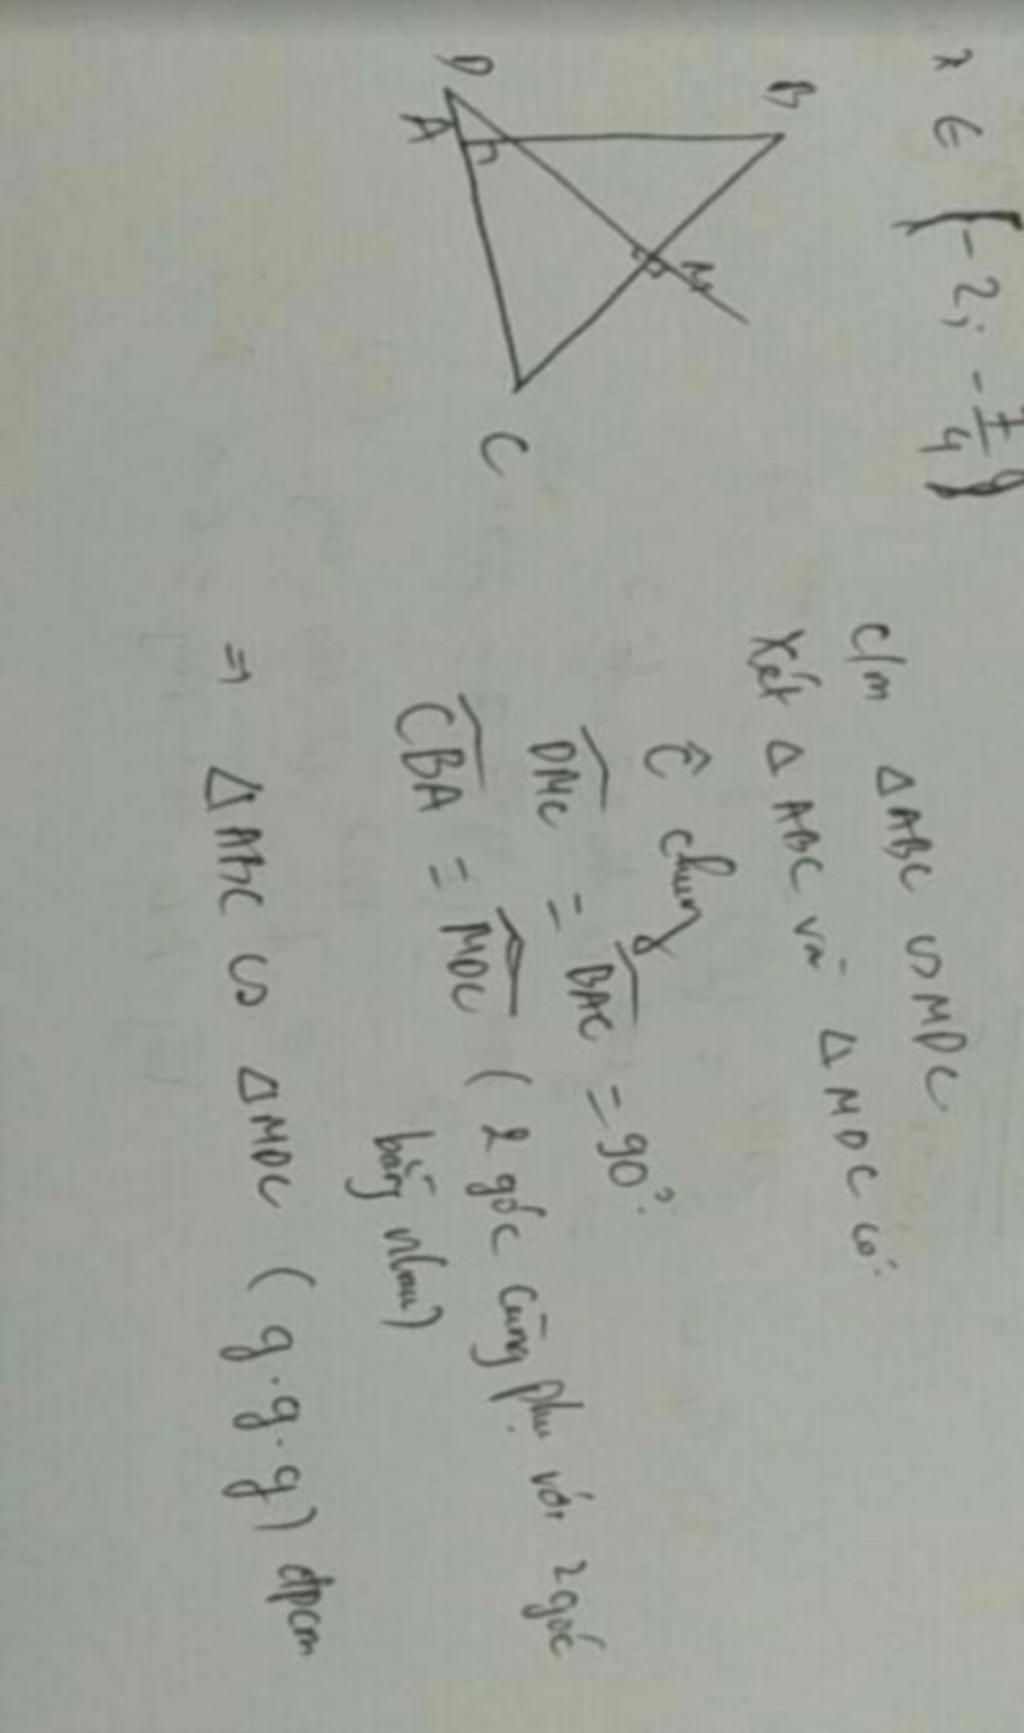 x ∈ {-2; -7/4}
D
B
A
M
C
c/m ΔABC ∽ MDC
Xét ΔABC và ΔMDC có:
Ĉ chung
DMC = BAC = 90°.
CBA = MDC (2 góc cùng phụ với 2 góc
bằng nhau)
⇒ ΔABC ∽ ΔMDC (g.g.g) đpcm